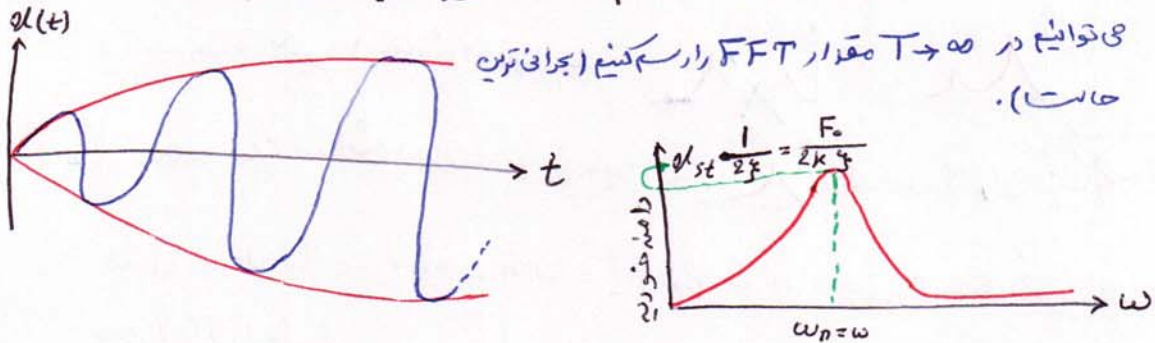 x(t)
می توانیم در T→∞ مقدار FFT را رسم کنیم (بحرانی ترین
حالت).
t
x_st · 1/2ξ = F₀/2kξ
دامنه فوریه
ω
ωn=ω